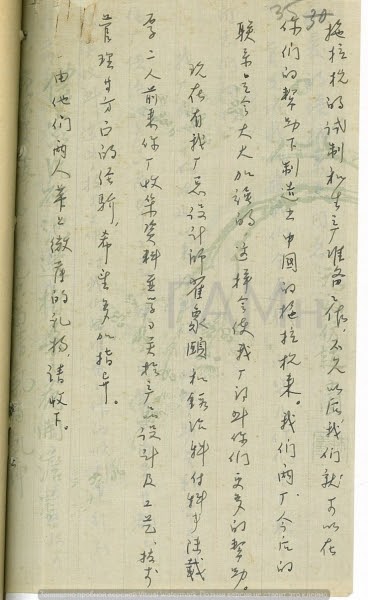 拖拉机的试制和生产准备工作，不久以后我们就可以在
你们的帮助下制造出中国的拖拉机来。我们两厂今后的
联系是会大大加强的，这样会使我厂得到你们更多的帮助。
现在有我厂总设计师崔象颐和锻冶科付科长陈载
二人前来你厂收集资料并学习关于产品设计及工艺、技术
管理等方面的经验，希望多加指导。
由他们两人带上微薄的礼物，请收下。
35
30
ГАМН